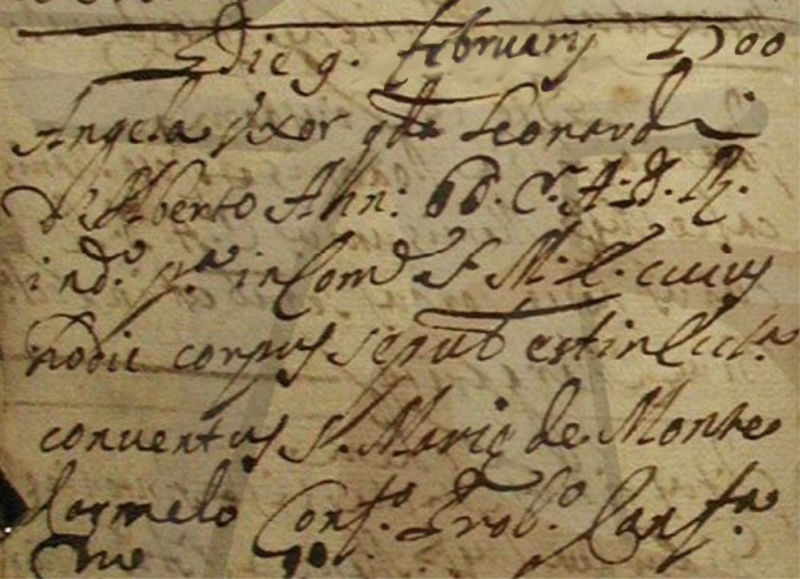 Die 9. february 1700
Angela Uxor qdm Leonardi
d'Alberto Ann: 60. C. A. D. R.
ind. p.a in Com S. M. E. cuius
hodie corpus sepult est in Eccl.a
conventus S. Marie de Monte
Carmelo Conf.o Prob.o
me